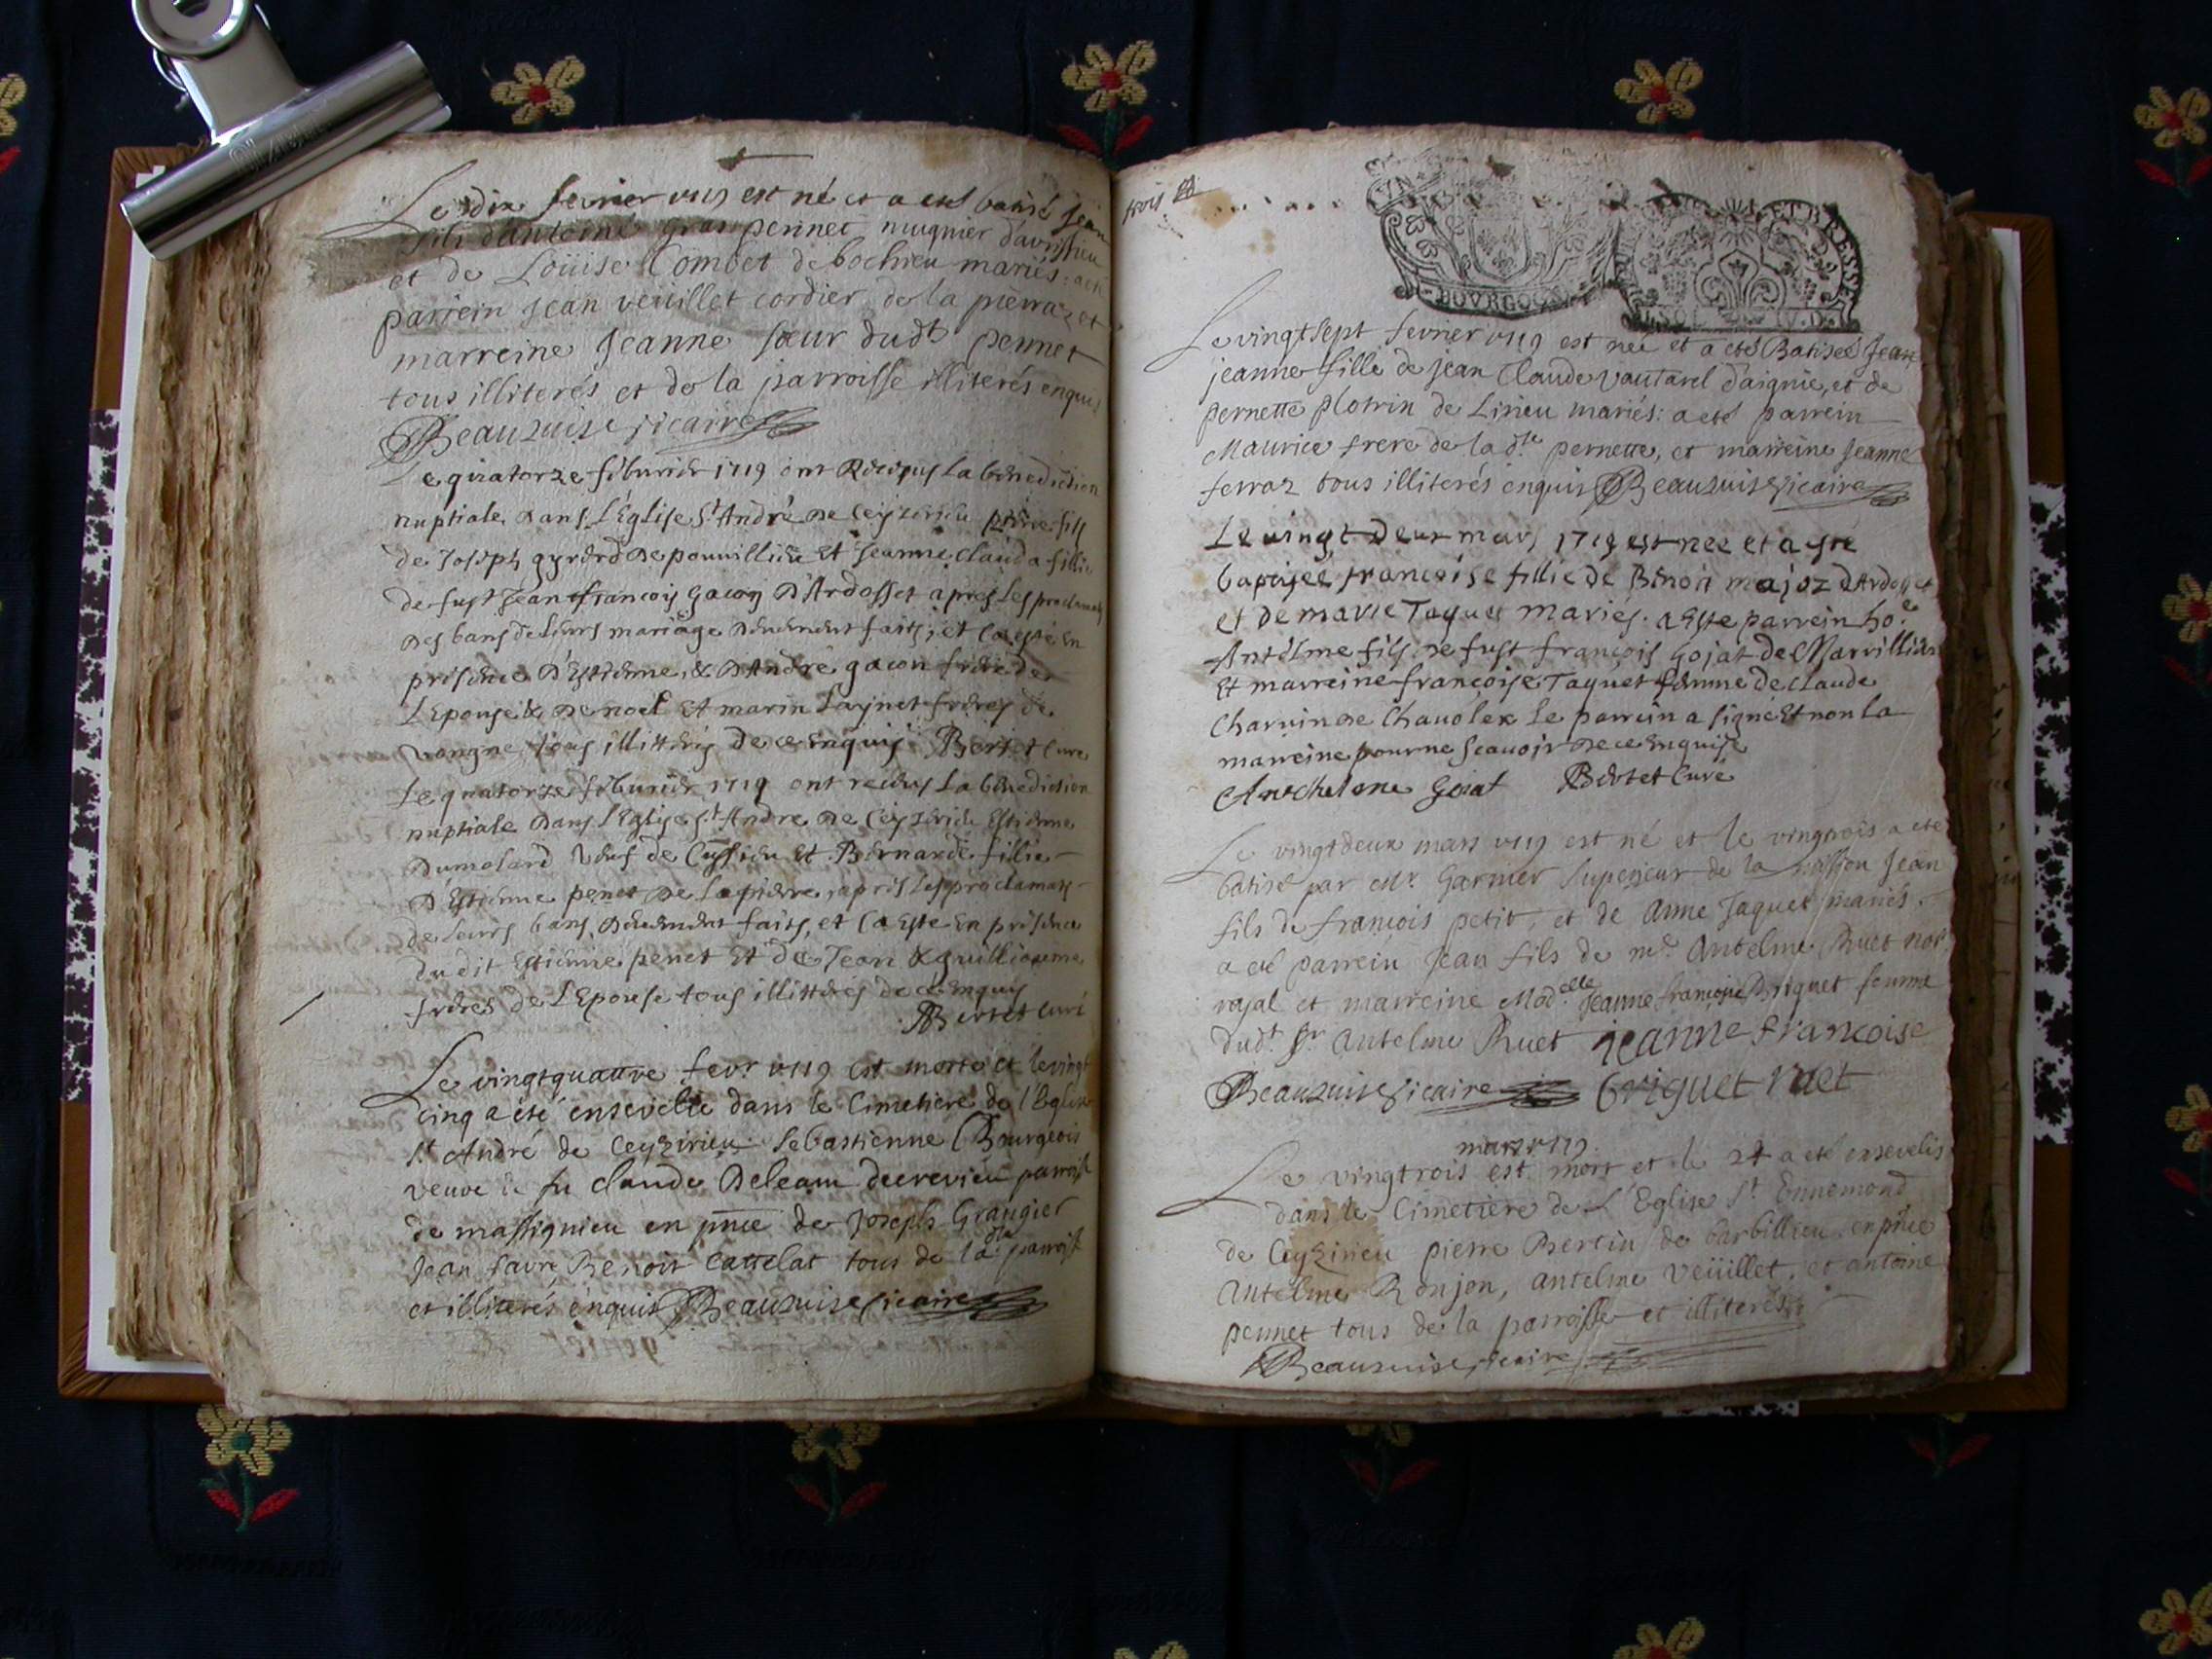 Le dix fevrier 1719 est né et a eté batisé Jean
fils d'antoine gros pennet
et de Loüise Combet de bochieu mariés: a eté
parrein Jean veüillet cordier de la pierraz et
marreine Jeanne sœur dudt pennet
tous illiterés et de la parroisse illiterés enquis
Beauzuise vicaire
Le quatorze feburier 1719 ont Receus La benediction
nuptiale dans L'Église St André de Ceyzerieu pierre fils
de Joseph gyrerd de pouvillieu Et Jeanne Clauda fillie
de fust Jean francois Gacon D'Ardosset apres Les proclamaõs
des bans de Leurs mariage deuement faits, et Ca esté En
presence D'Estienne, & D'André gacon freres de
L'Epouse & de noel Et marin freres de
vongne, tous illitterés de ce Enquis Bertet Curé
Le quatorze feburier 1719 ont receus La benediction
nuptiale Dans L'Eglise St Andre de Ceyzerieu Estienne
Dumolard veuf de Cussieu Et Bernarde fillie
D'Estienne penet de Lapierre, apres Les proclamaõs
de Leurs bans, deuement faits, et Ca Este En presence
du dit Estienne penet Et de Jean & guillioeme
freres de L'Epouse tous illitterés de ce Enquis
Bertet Curé
Le vingtquatre fevr 1719 est morte et le vingt
cinq a été ensevelie dans le Cimetiere de l'Eglise
St André de Ceyzirieu Sebastienne Bourgeois
veuve de fu claude Deleam decrevieu parroisse
de massignieu en pñce de Joseph Grangier
Jean favre Benoit Cattelat tous de la dte parroisse
et illiterés enquis Beauzuise vicaire
trois
BOVRGOGNE ET BRESSE
SOL IV.D.
Le vingtsept fevrier 1719 est neé et a eté Batiseé Jean
jeanne fille de Jean Claude vautarel d'aignie, et de
pernette plotrin de Lirieu mariés: a eté parrein
Maurice frere de la dte pernette, et marreine Jeanne
ferraz tous illiterés enquis Beauzuise vicaire
Le vingt Deux mars 1719 est neé et a esté
baptisee francoise fillie de Binoit majoz d'Ardosset
et De marie Taquet mariés. a Esté parrein ho.e
Antelme fils de fust françois Gojat de Marvillian
Et marreine françoise Taquet femme de claude
Charvin de Chavolex Le parrein a signé Et non La
marreine pour ne scavoir de ce Enquise
Anthelme Goiat Bertet Curé
Le vingtdeux mars 1719 est né et le vingtrois a eté
batisé par Mr. Garnier Superieur de la mission Jean
fils de francois petit, et de Anne Taquet mariés.
a eté parrein Jean fils de me Antelme Ruet not.
royal et marreine Madelle Jeanne françoise Briguet femme
dudt Sr. Antelme Ruet jeanne francoise
Beauzuise vicaire briguet ruet
mars 1719.
Le vingtrois est mort et le 24 a eté ensevelis
dans le Cimetiere de L'Eglise St Ennemond
de Ceyzirieu pierre Bertin de barbillieu en pñce
Antelme Ronjon, antelme veüillet, et antoine
pennet tous de la parroisse et illiterés
Beauzuise vicaire